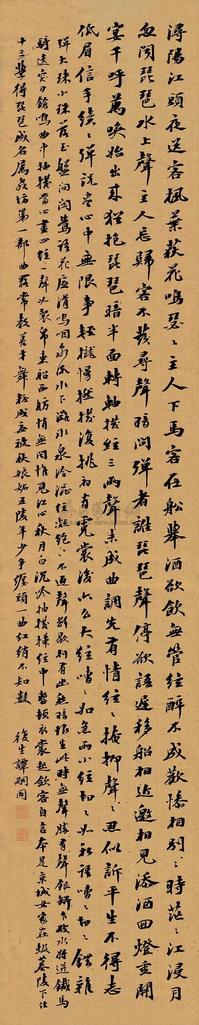 潯陽江頭夜送客楓葉荻花鳴瑟〻主人下馬客在船舉酒欲飲無管絃醉不成歡慘相別〻時茫〻江浸月
忽聞琵琶水上聲主人忘歸客不發尋聲暗問彈者誰琵琶聲停欲語遲移船相近邀相見添酒回燈重開
宴千呼萬喚始出來猶抱琵琶暗半面轉軸撥絃三兩聲未成曲調先有情絃〻掩抑聲〻思似訴平生不得志
低眉信手續〻彈說盡心中無限事輕攏慢撚撥復挑初為霓裳後六么大絃嘈〻如急雨小絃切〻如私語嘈〻切〻錯雜
彈大珠小珠落玉盤間關鶯語花底滑幽咽泉流水下灘水泉冷澀絃凝絕〻不通聲漸歇別有幽愁暗恨生此時無聲勝有聲銀瓶乍破水漿迸鐵馬
騎突出刀鎗鳴曲中抽撥當心畫四絃一聲如裂帛東船西舫悄無言惟見江心秋月白沉吟抽撥插絃中整頓衣裳起斂容自言本是京城女家在蝦蟇陵下住
十三學得琵琶成名屬教坊第一部曲罷常教善才服妝成每被秋娘妒五陵年少爭纏頭一曲紅綃不知數
復生譚嗣同